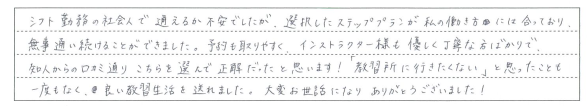 シフト勤務の社会人で通えるか不安でしたが、選択したステッププランが私の働き方には合っており、
無事通い続けることができました。予約も取りやすく、インストラクター様も優しく丁寧な方ばかりで、
知人からの口コミ通りこちらを選んで正解だったと思います！「教習所に行きたくない」と思ったことも
一度もなく、良い教習生活を送れました。大変お世話になりありがとうございました！